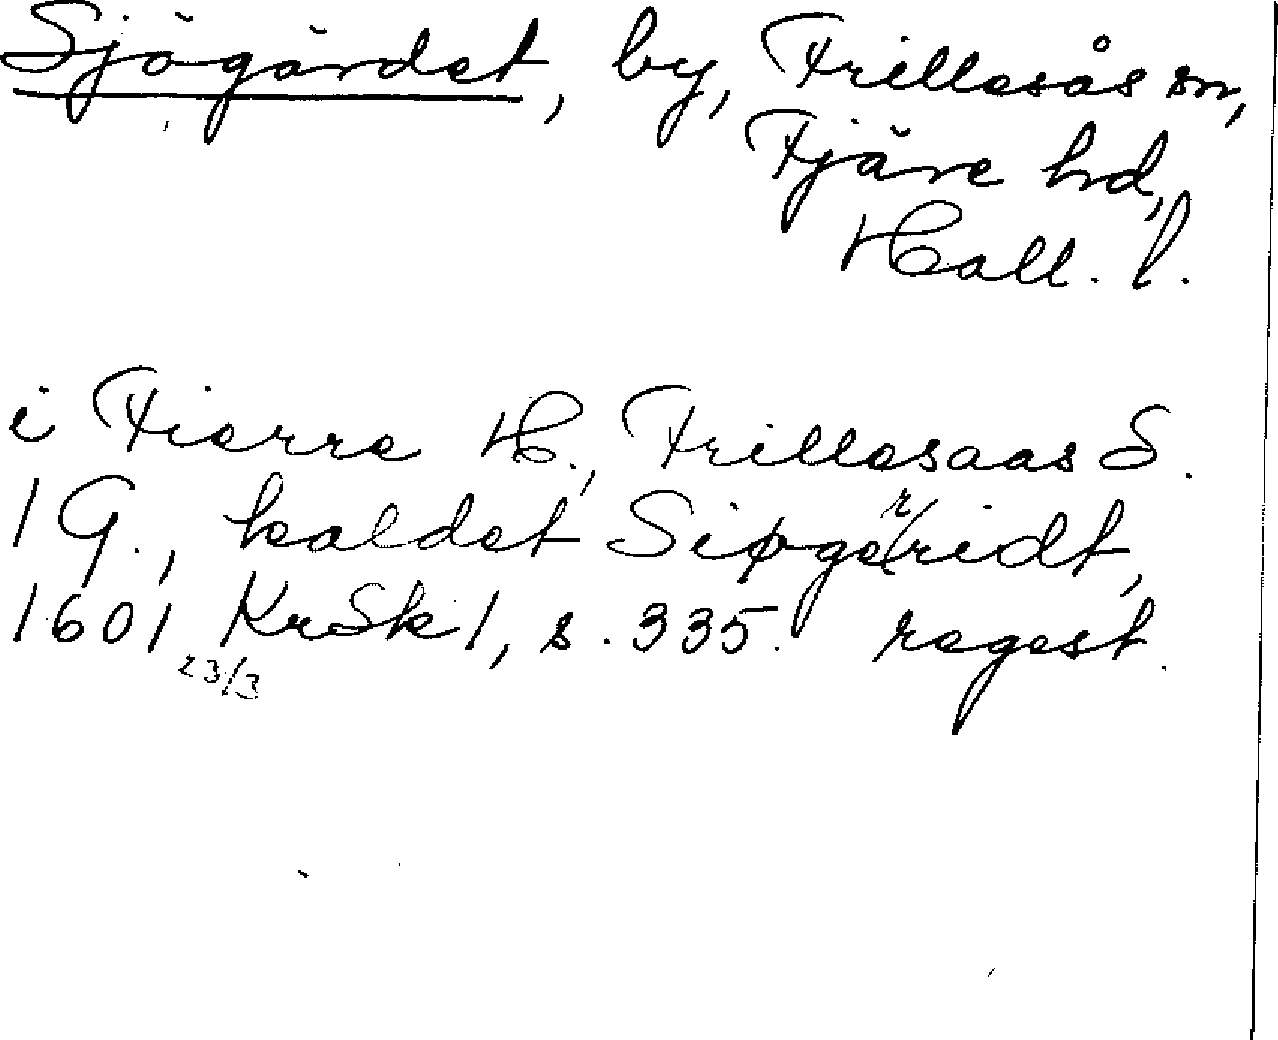 Sjögärdet, by, Frillesås sn,
Fjäre hd,
Hall. l.
i Fierre H., Frillesaas S.
1 G., kaldet Siøge(r/ridt,
1601 23/3 KrSk 1, s. 335. regest.